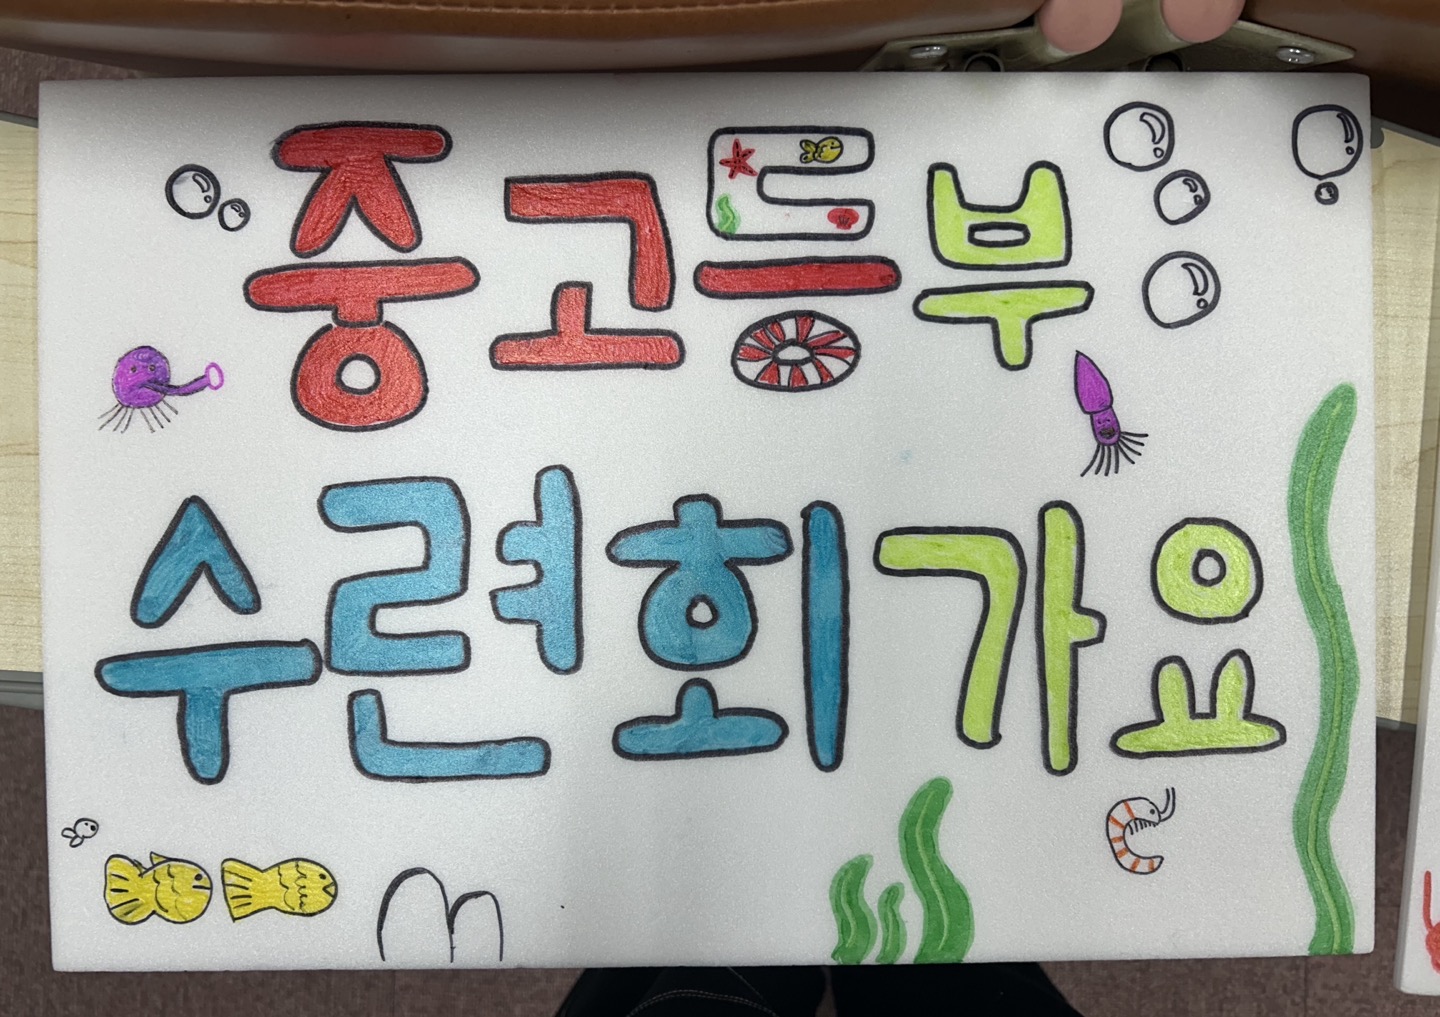 중고등부
수련회가요